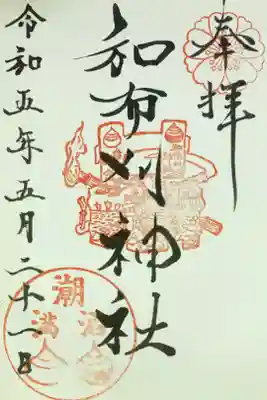 奉拝
和布刈神社
令和五年五月二十一日
潮
満